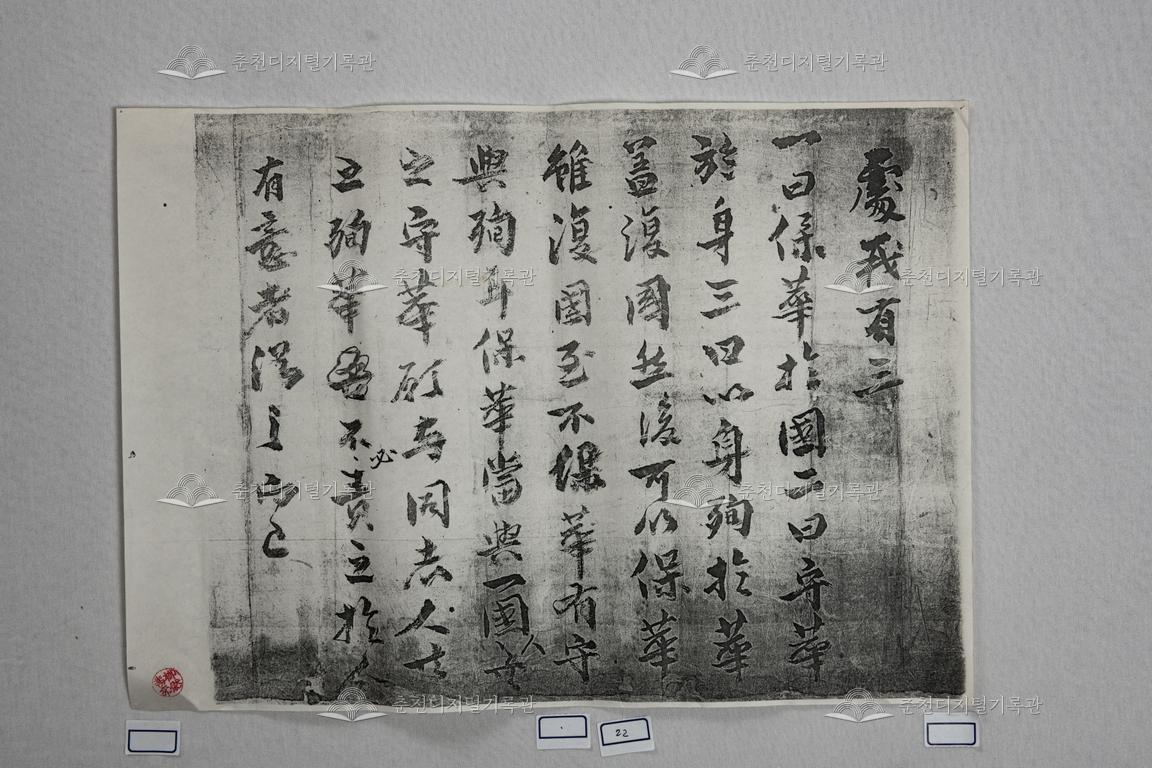 處我有三
一曰保華於國二曰守華
於身三曰以身殉於華
蓋復國然後可以保華
雖復國至不保華有守
與殉耳保華當與一國人共
之守華与同志人士
之殉華吾不必責之於人
有意者從之而已
22
춘천디지털기록관
춘천디지털기록관
춘천디지털기록관
춘천디지털기록관
춘천디지털기록관
춘천디지털기록관
춘천디지털기록관
춘천디지털기록관